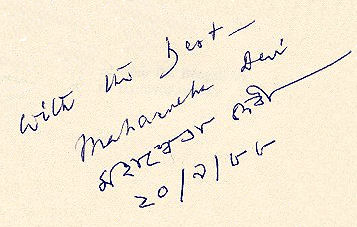 With the Best—
Mahasweta Devi
মহাশ্বেতা দেবী
২০/২/৮৮